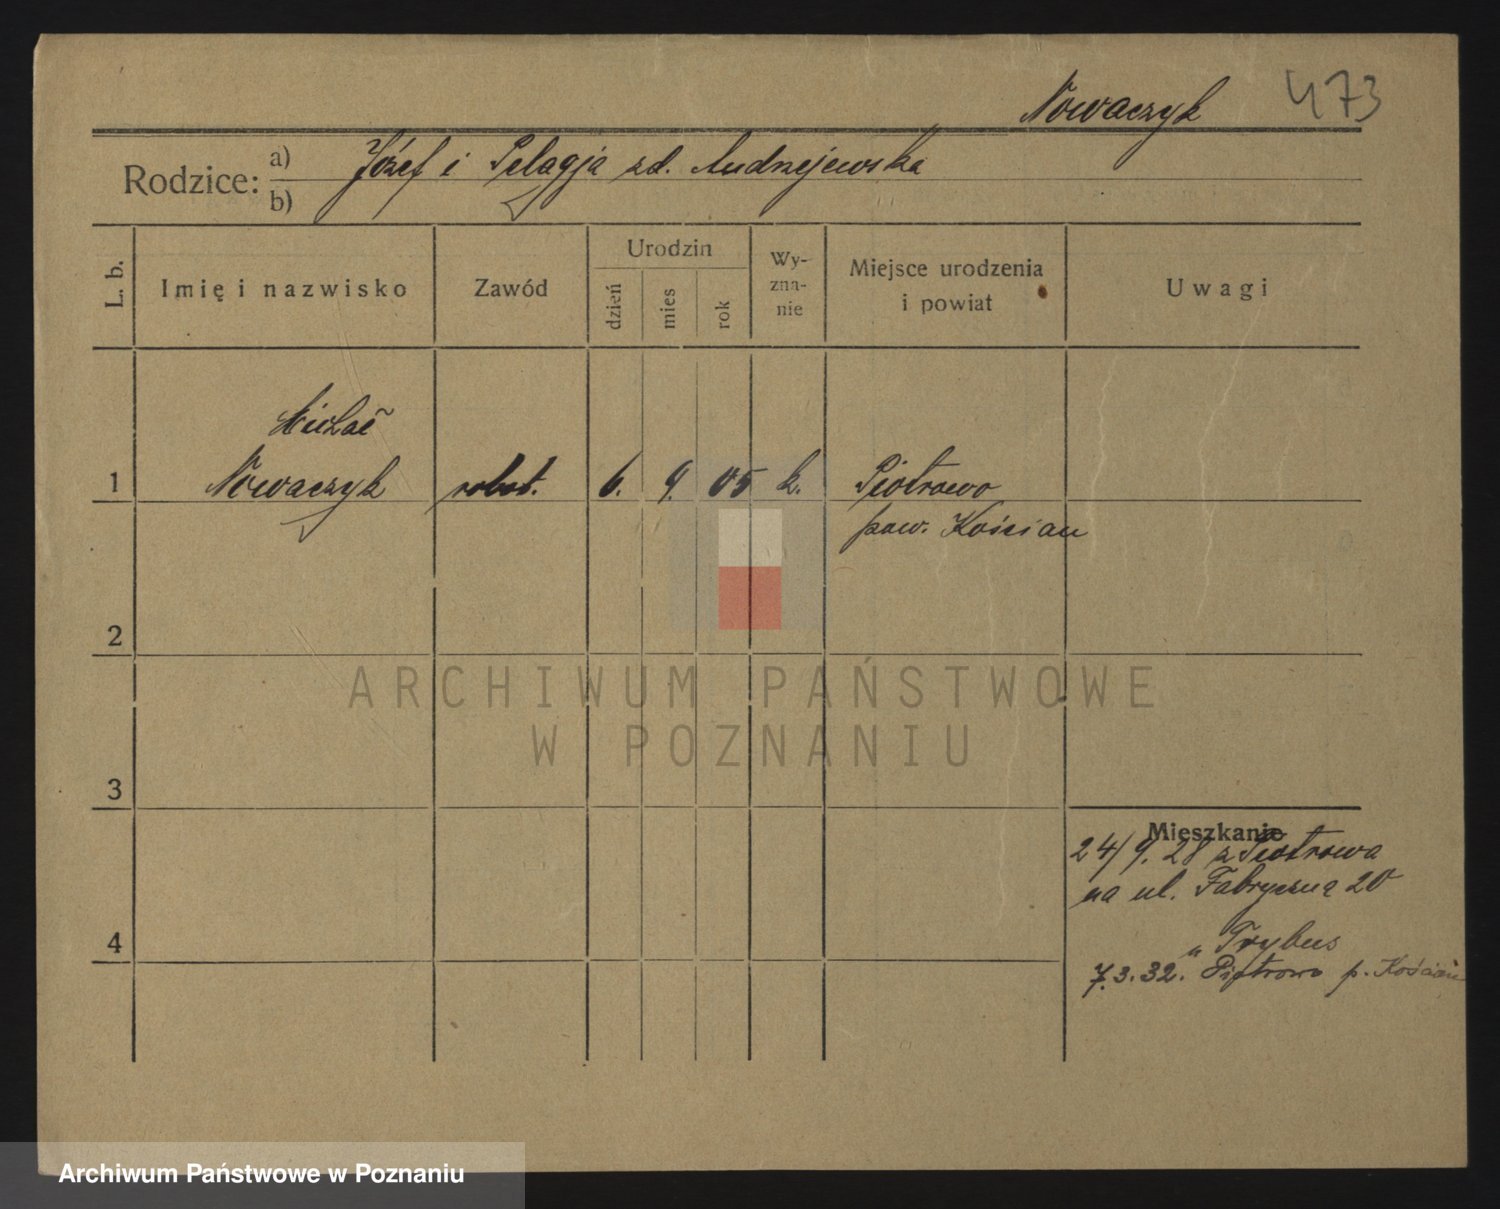 Nowaczyk 473
Rodzice: a) Józef i Pelagja zd. Andrzejewska
b)
L. b. Imię i nazwisko Zawód Urodzin dzień mies rok Wy-zna-nie Miejsce urodzenia i powiat Uwagi
Michał
1 Nowaczyk robot. 6. 9. 05 k. Piotrowo
pow. Kościan
2
ARCHIWUM PAŃSTWOWE
W POZNANIU
3
Mieszkanie
24/9. 28 z Piotrowa
na ul. Fabryczną 20
4
" Trybus
7.3.32. Piotrowo p. Kościan
Archiwum Państwowe w Poznaniu